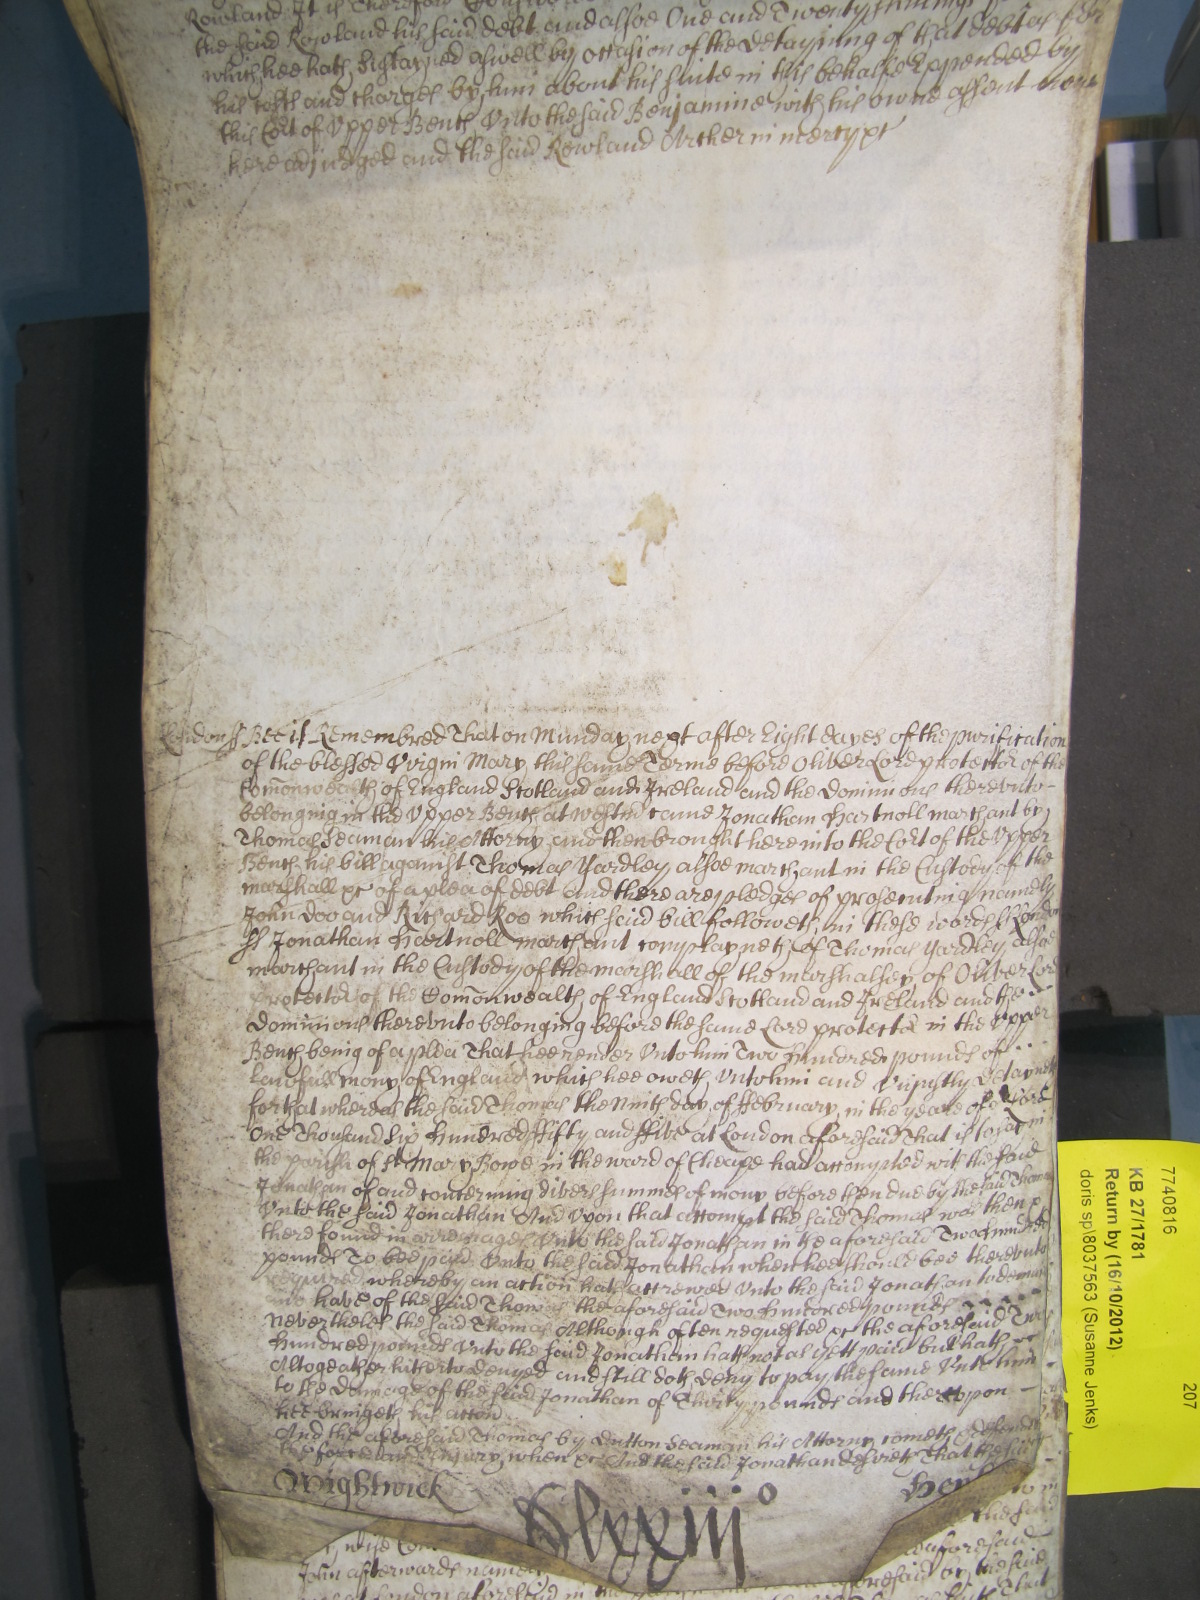 Rowland It is Therefore
the said Rowland his said debt and alsoe One and Twenty shillings
which hee hath Sustayned aswell by occasion of the detayning of that debt as for
his costs and charges by him about his suite in this behalfe Expended by
this Cort of Upper Bench Unto the said Benjamine with his owne assent
here adjudged and the said Rowland Arther in mercy &c
London ss Bee it Remembred That on Munday next after Eight dayes of the purification
of the blessed Virgin Mary this same Terme before Oliver Lord protector of the
Comonwealth of England Scotland and Ireland and the Dominions thereunto
belonging in the Upper Bench at Westmr came Jonathan Hartnoll marchant by
Thomas Seaman his Attorny and then brought here into the Cort of the Upper
Bench his bill against Thomas Yardley alsoe marchant in the Custody of the
marshall &c of a plea of debt and there are pledges of prosecuting namely
John Doo and Richard Roo which said bill followeth in these words ss London
ss Jonathan Hartnoll marchant complayneth of Thomas Yardley alsoe
marchant in the Custody of the marshall of the marshalsey of Oliver Lord
protector of the Comonwealth of England Scotland and Ireland and the
Dominions thereunto belonging before the same Lord protector in the Upper
Bench being of a plea That hee render Unto him Two Hundred pounds of
lawfull mony of England which hee oweth Unto him and Unjustly detayneth
for that whereas the said Thomas the Ninth day of ffebruary in the yeare of or Lord
One Thousand Six Hundred ffifty and ffive at London aforesaid That is to say in
the parish of St Mary Bowe in the ward of Cheape had accompted with the said
Jonathan of and concerning divers summes of mony before then due by the said Thomas
Unto the said Jonathan And Upon that accompt the said Thomas was then
there found in arrerages Unto the said Jonathan in the aforesaid Two Hundred
pounds To bee paid Unto the said Jonathan when hee should bee thereunto
required whereby an action hath accrewed Unto the said Jonathan to demand
and have of the said Thomas the aforesaid Two Hundred pounds
nevertheles the said Thomas Although often requested &c the aforesaid Two
Hundred pounds Unto the said Jonathan hath not as yett paid but hath
Altogeather hitherto denyed and still doth deny to pay the same Unto him
to the damage of the said Jonathan of Thirty pounds and thereupon
hee bringeth his accon
And the aforesaid Thomas by Dutton Seaman his Attorny cometh & defendeth
the force and Injury when &c And the said Jonathan desireth That the said
Wightwick
Clxxiijo
John afterwards
aforesaid
at London aforesaid in
7740816
207
KB 27/1781
Return by (16/10/2012)
doris sp\8037563 (Susanne Jenks)